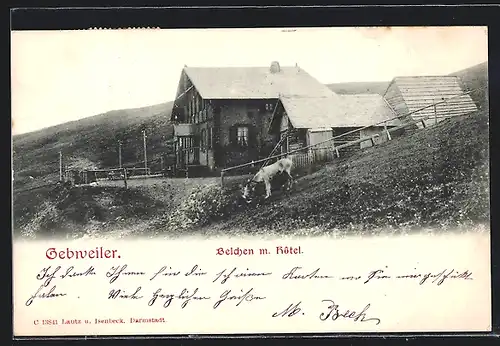 Gebweiler.
Belchen m. Hôtel.
Ich danke Ihnen für die schönen Karten wo Sie mir geschickt
haben. Viele herzliche Grüße
M. Beck
C 13841 Lautz u. Isenbeck, Darmstadt